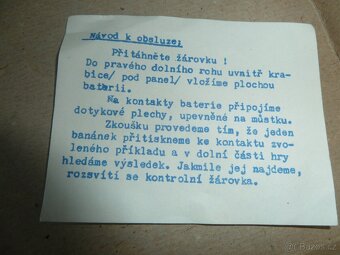 Návod k obsluze;
Přitáhněte žárovku !
Do pravého dolního rohu uvnitř kra-
bice/ pod panel/ vložíme plochou
baterii.
Na kontakty baterie připojíme
dotykové plechy, upevněné na můstku.
Zkoušku provedeme tím, že jeden
banánek přitiskneme ke kontaktu zvo-
leného příkladu a v dolní části hry
hledáme výsledek. Jakmile jej najdeme,
rozsvítí se kontrolní žárovka.